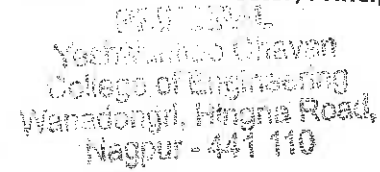 PRINCIPAL
Yeshwantrao Chavan
College of Engineering
Wanadongri, Hingna Road,
Nagpur - 441 110